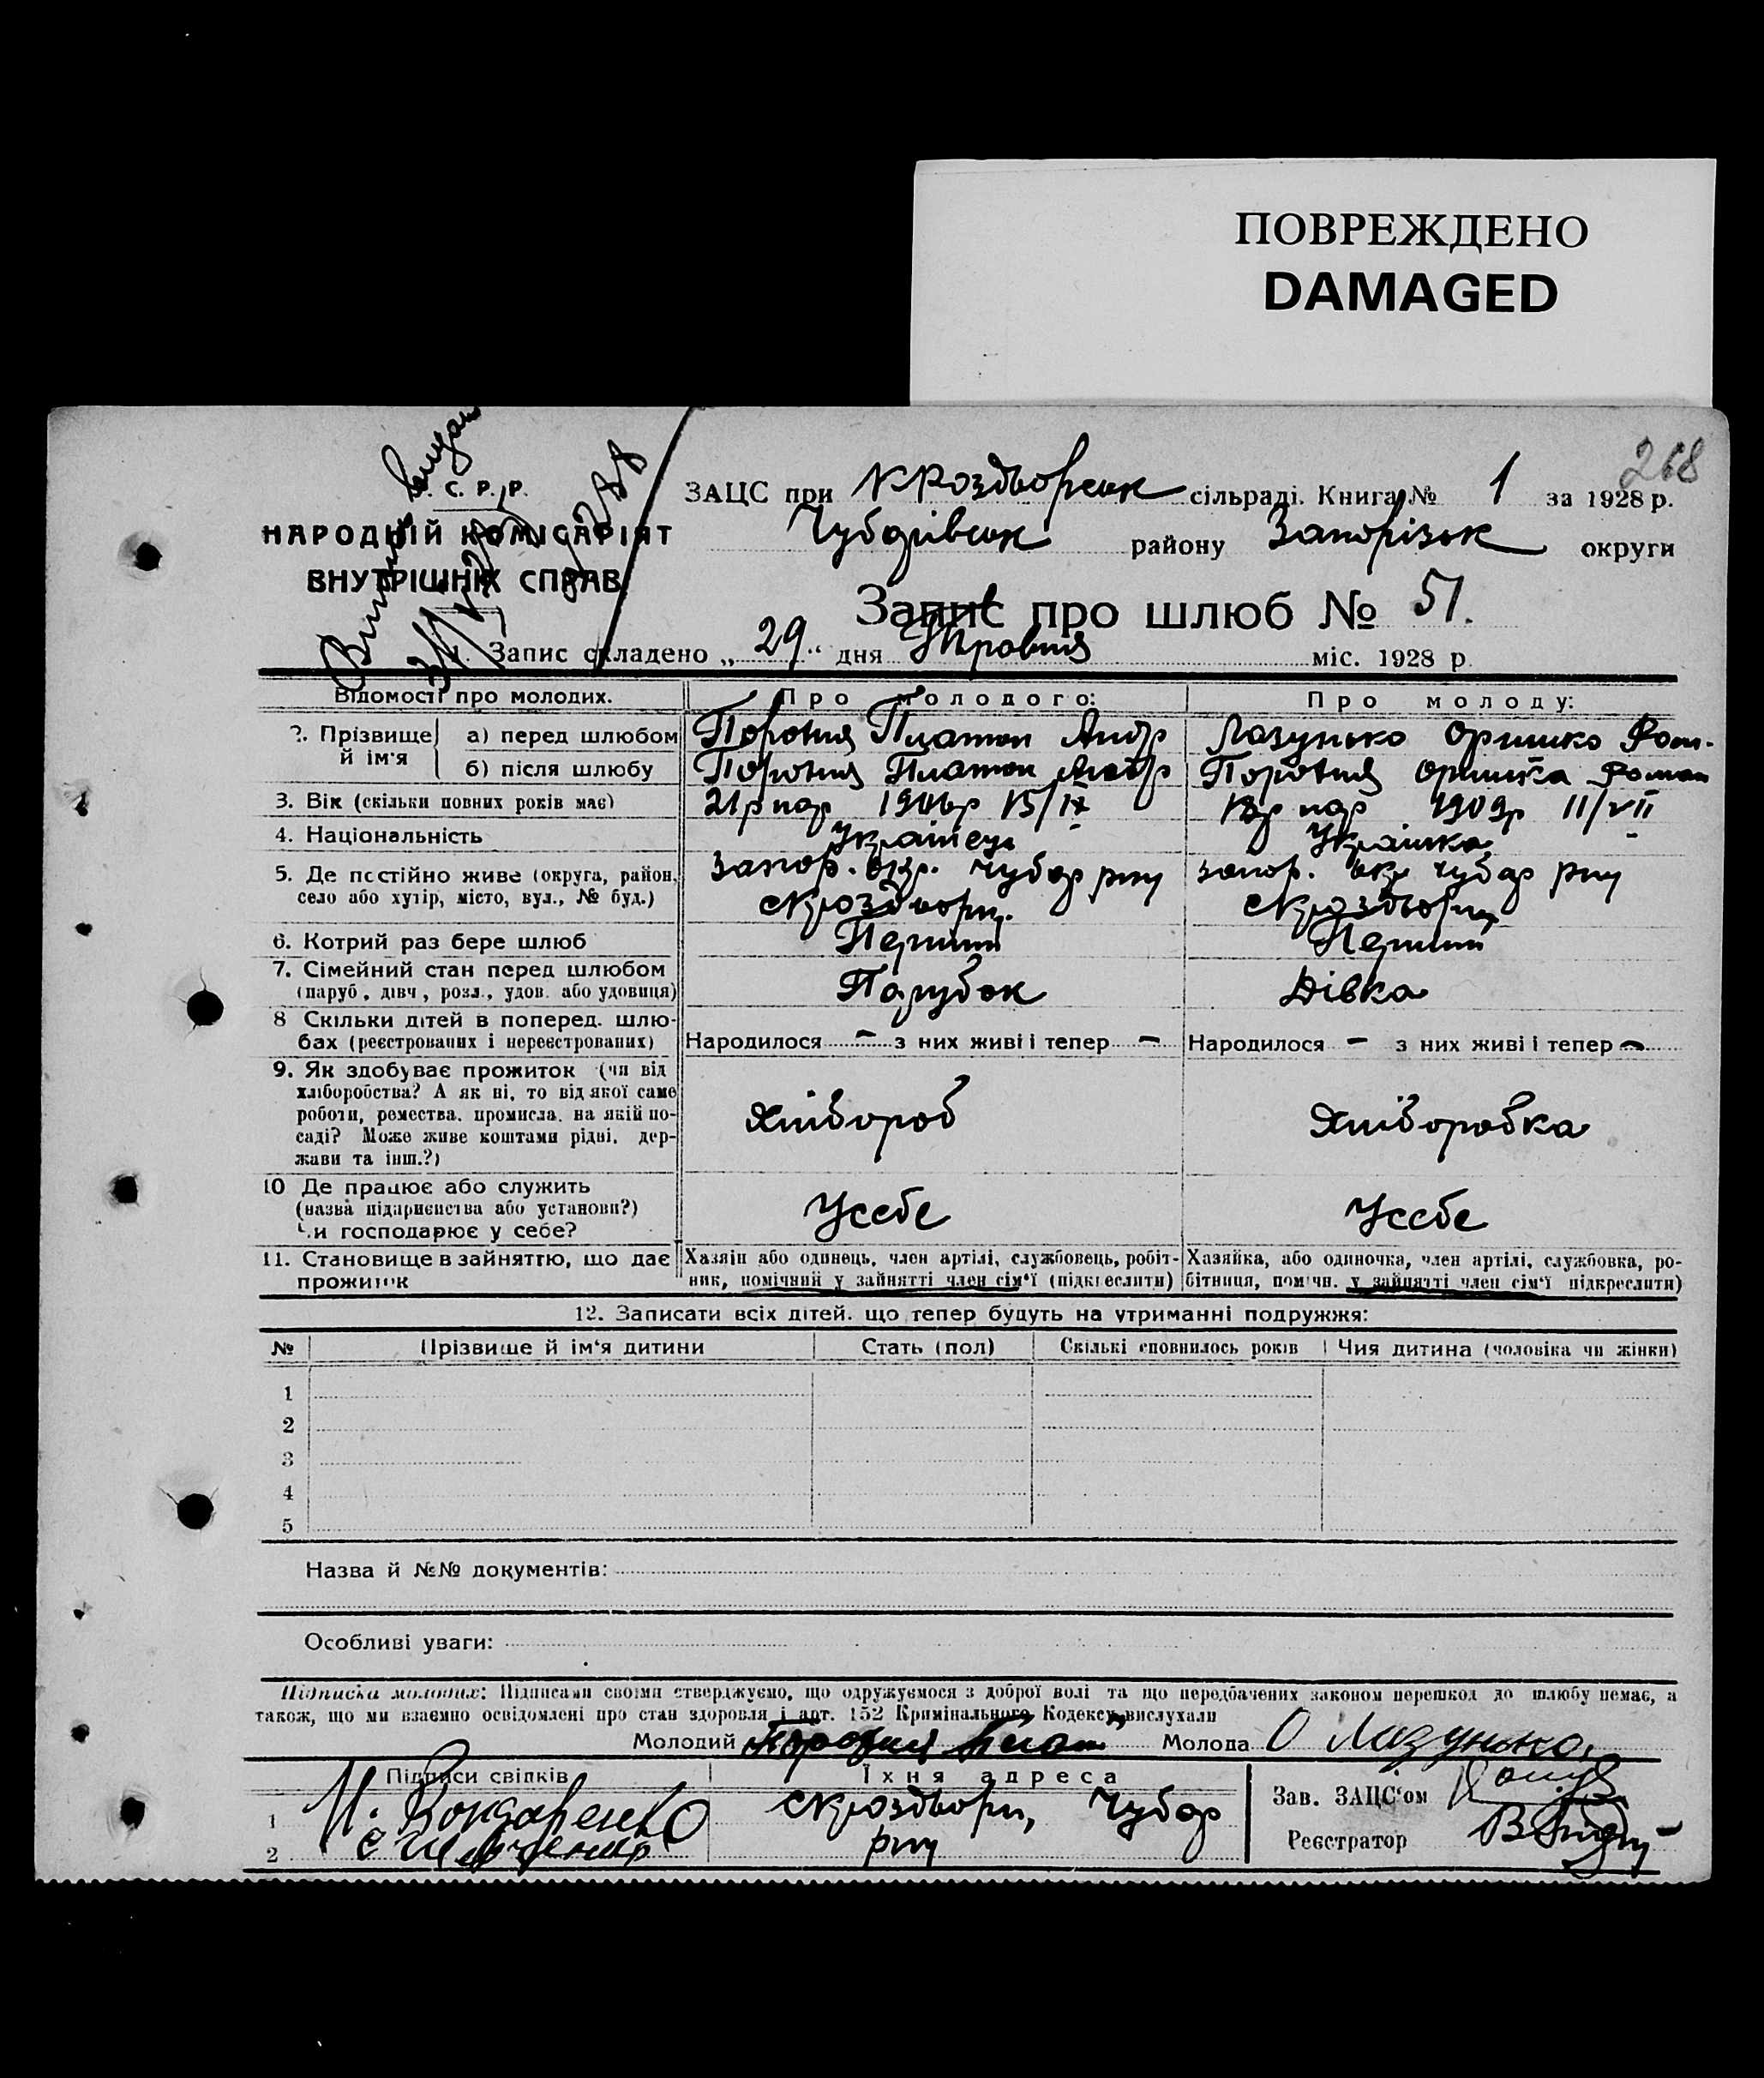 ПОВРЕЖДЕНО
DAMAGED
268
С. Р. Р.
НАРОДНІЙ КОМІСАРІЯТ
ВНУТРІШНІХ СПРАВ
ЗАЦС при КРоздворськ сільраді. Книга № 1 за 1928 р.
Чубарівськ району Запорізьк округи
Запис про шлюб № 51.
Запис складено „ 29 “ дня Травня міс. 1928 р.
Відомості про молодих. Про молодого: Про молоду:
2. Прізвище й ім'я
а) перед шлюбом Поротня Платон Андр Лазунько Оришко Ром.
б) після шлюбу Поротня Платон Андр Поротня Оришка Роман
3. Вік (скільки повних років має) 21р нар 1906р 15/IX нар 1909р 11/VII
4. Національність Українець Українка
5. Де постійно живе (округа, район, село або хутір, місто, вул., № буд.) Запор. окр. Чубар рну Запор. окр Чубар рну
6. Котрий раз бере шлюб Перший Перший
7. Сімейний стан перед шлюбом (паруб., дівч., розл., удов. або удовиця) Парубок Дівка
8 Скільки дітей в поперед. шлюбах (реєстрованих і нереєстрованих) Народилося — з них живі і тепер — Народилося — з них живі і тепер —
9. Як здобуває прожиток (чи від хліборобства? А як ні, то від якої саме роботи, ремества, промисла, на якій посаді? Може живе коштами рідні, держави та інш.?) Хлібороб Хліборобка
10 Де працює або служить (назва підприємства або установи?) Чи господарює у себе? Усебе Усебе
11. Становище в зайняттю, що дає прожиток
Хазяін або одинець, член артілі, службовець, робітник, помічний у зайнятті член сім'ї (підкреслити)
Хазяйка, або одиночка, член артілі, службовка, робітниця, помічн. у зайнятті член сім'ї підкреслити)
12. Записати всіх дітей, що тепер будуть на утриманні подружжя:
№ Прізвище й ім'я дитини Стать (пол) Скількі сповнилось років Чия дитина (чоловіка чи жінки)
1
2
3
4
5
Назва й №№ документів:
Особливі уваги:
Підписка молодих: Підписами своїми стверджуємо, що одружуємося з доброї волі та що передбачених законом перешкод до шлюбу немає, а
також, що ми взаємно освідомлені про стан здоровля і арт. 152 Кримінального Кодексу вислухали
Молодий Поротня Плат Молода О Лазунько
Підписи свідків Їхня адреса
1 М. Бондаренко Чубар
2 Є Шевченко рну
Зав. ЗАЦС'ом
Реєстратор